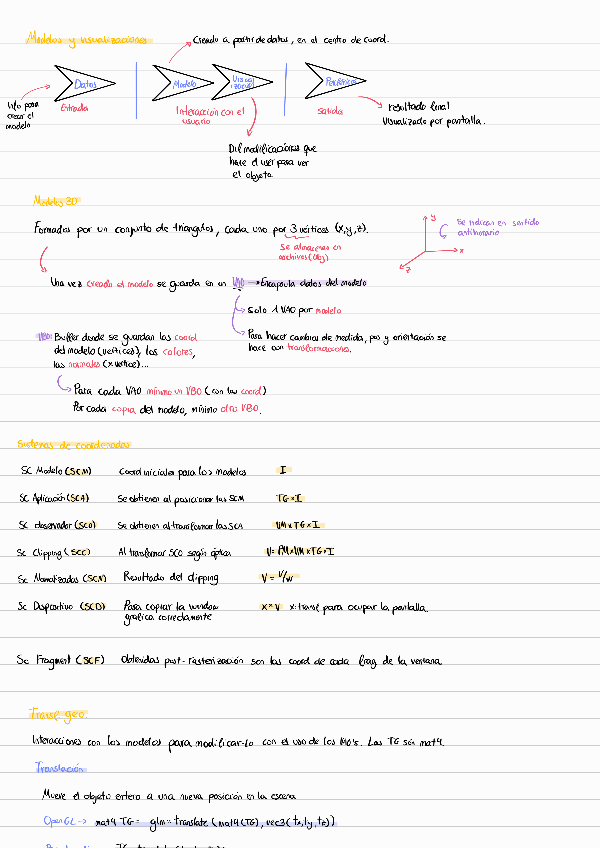 Modelos y visualizaciones
Creado a partir de datos, en el centro de coord.
Datos
Modelo
Periféricos
Info para
crear el
modelo
Entrada
Interacción con el
usuario
Salida
resultado final
visualizado por pantalla.
modificaciones que
hace el user para ver
el objeto
Modelos 3D
Formados por un conjunto de triangulos, cada uno por 3 vértices (x,y,z).
Se almacenan en
archivos (Obj)
y
x
z
Se indican en sentido
antihorario
Una vez creado el modelo se guarda en un VAO → Encapsula datos del modelo
Solo 1 VAO por modelo
Para hacer cambios de medida, pos y orientación se
hace con transformaciones.
VBO: Buffer donde se guardan las coord
del modelo (vertices), los colores,
las normales (x vertice)...
Para cada VAO mínimo un VBO (con las coord)
Por cada copia del modelo, mínimo otro VBO.
Sistemas de coordenadas
SC Modelo (SCM) Coord iniciales para los modelos I
SC Aplicación (SCA) Se obtienen al posicionar las SCM TG×I
SC observador (SCO) Se obtienen al transformar las SCA VM×TG×I
SC Clipping (SCC) Al transformar SCO según óptica V= PM×VM×TG×I
SC Normalizadas (SCN) Resultado del clipping V = V/w
SC Dispositivo (SCD) Para copiar la window x×V x:transf para ocupar la pantalla.
gráfica correctamente
SC Fragment (SCF) Obtenidas post-rasterización son las coord de cada frag de la ventana
Transf. geo.
Interacciones con los modelos para modificar-lo con el uso de los Las TG són mat4.
Translación
Mueve el objeto entero a una nueva posición en la escena
OpenGL → mat4 TG = glm::translate (mat4(TG), vec3(tx,ty,tz))